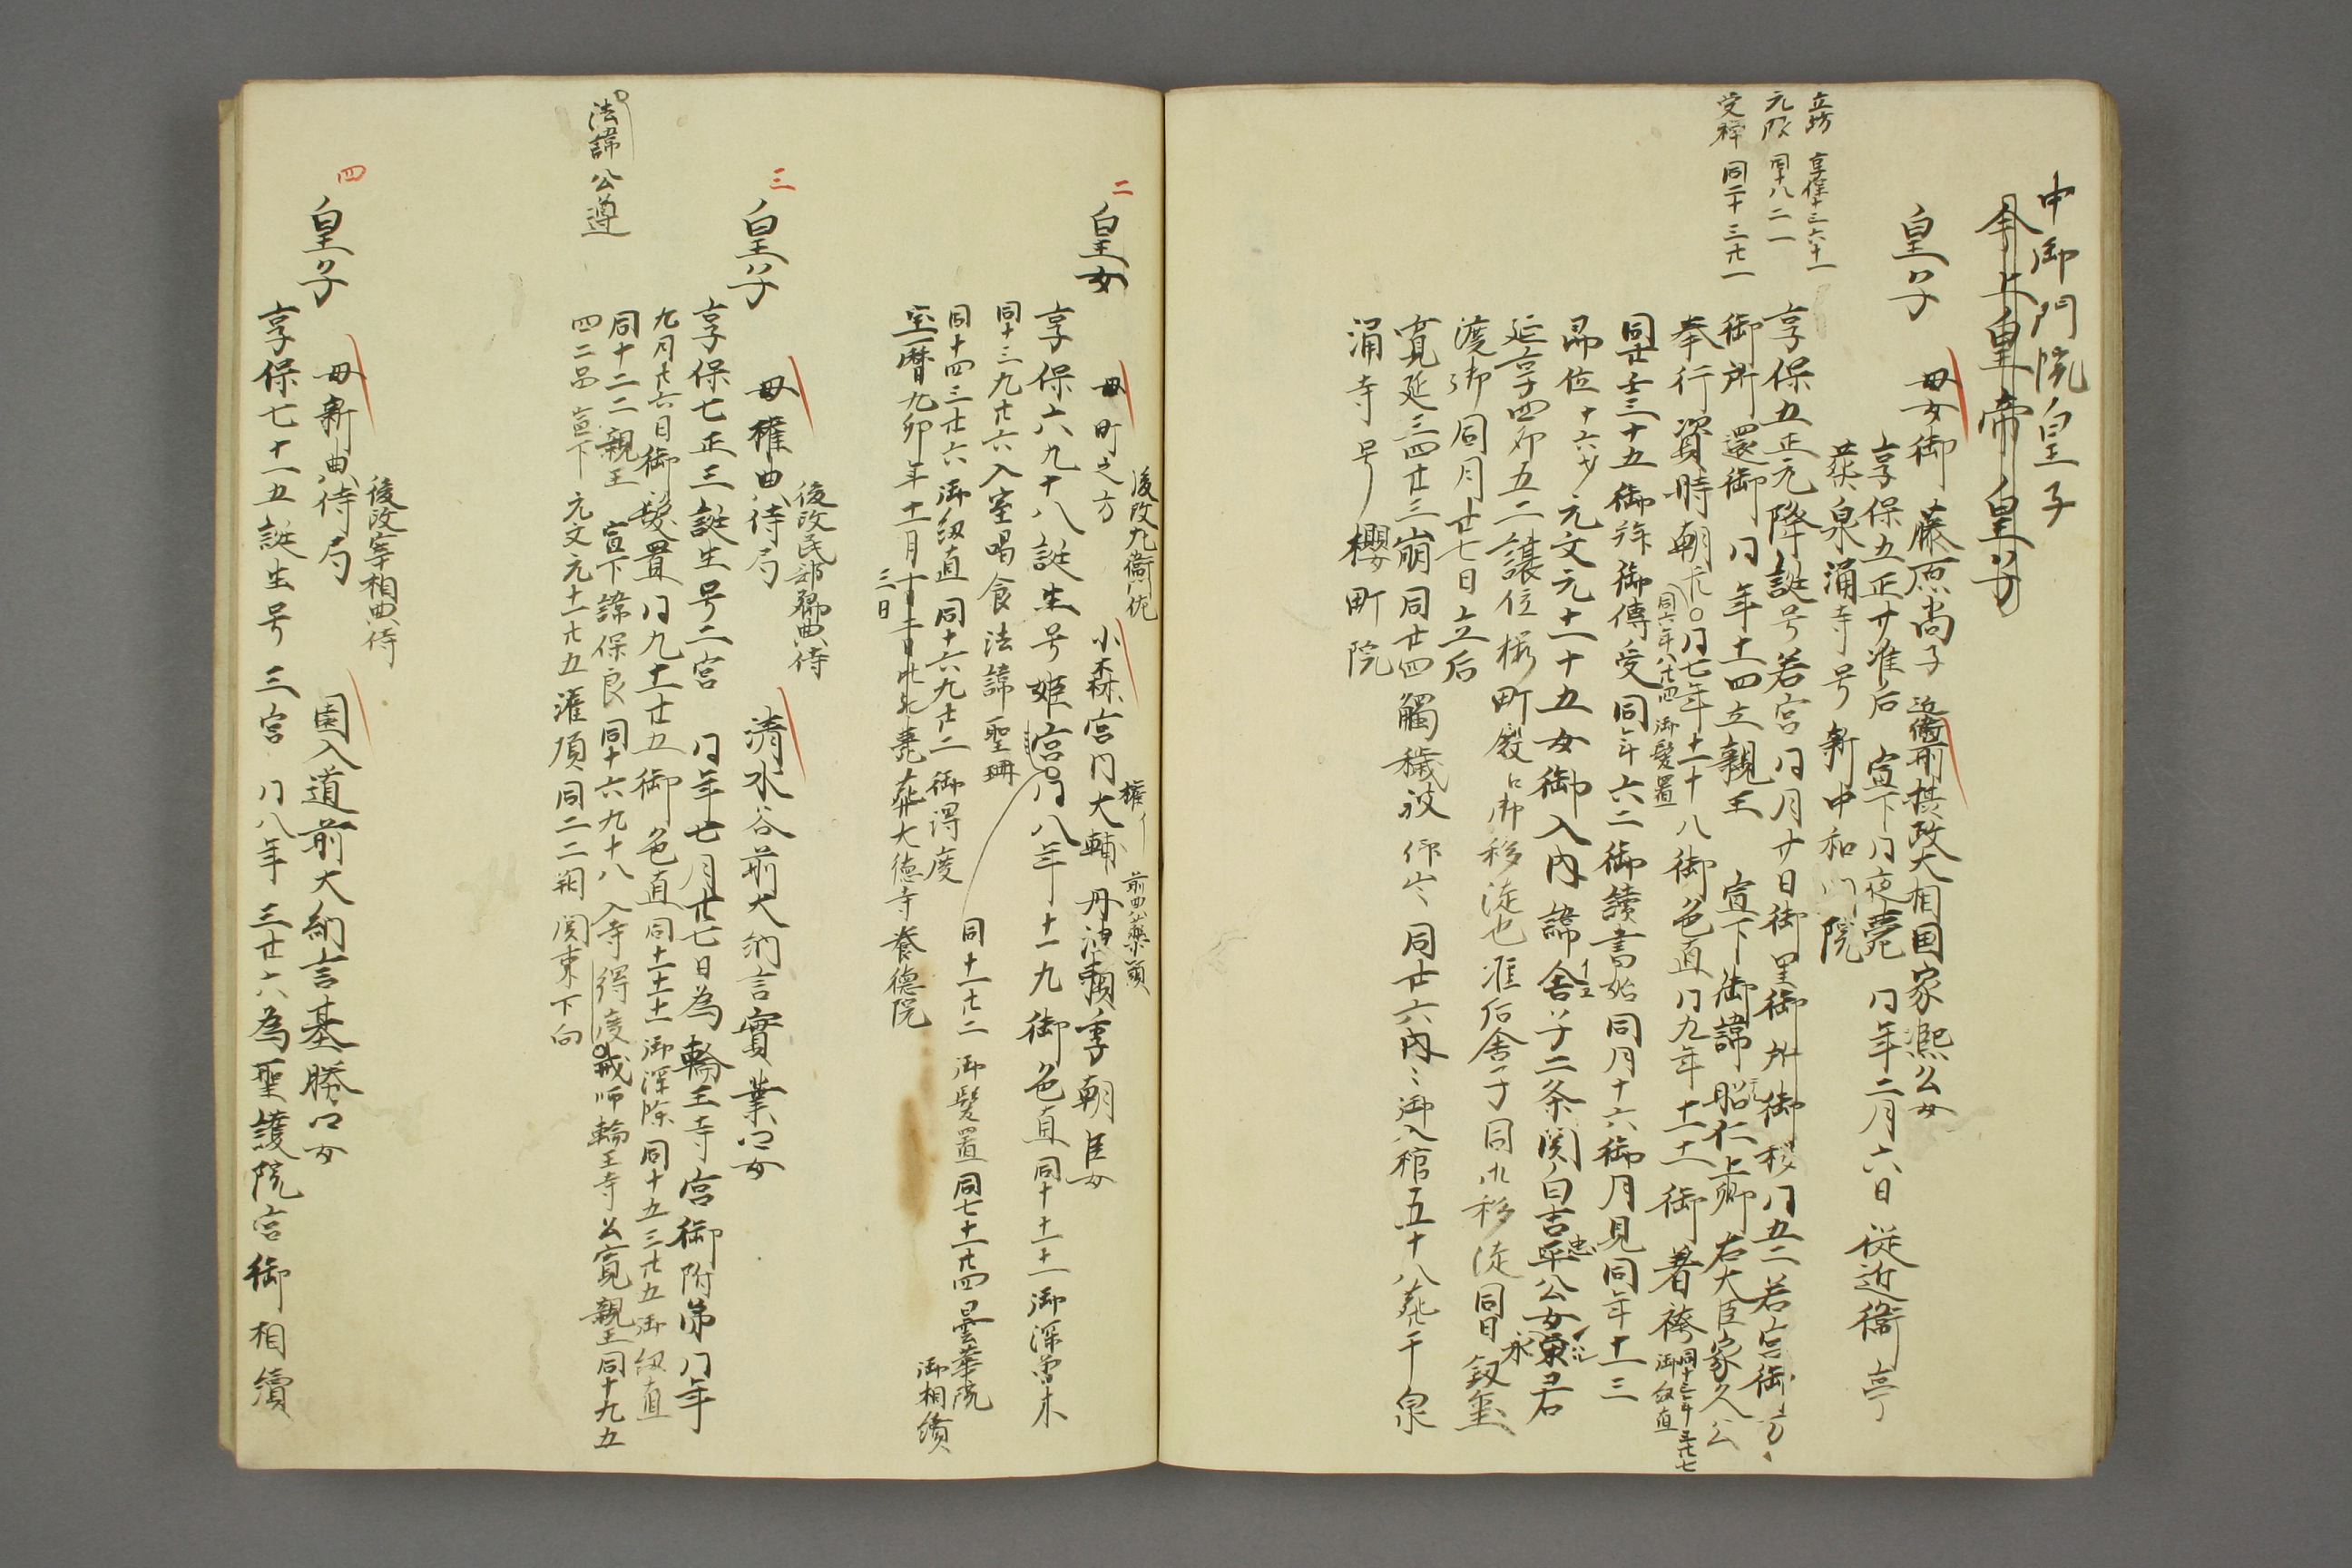 中御門院皇子
今上皇帝皇子
皇子
母女御 藤原尚子 近衛前摂政大相国家熙公女
享保五正廿准后 宣下同夜薨 同年二月六日 従近衛亭
葬泉涌寺号新中和門院
立坊 享保十三六十一
元服 同十八二一
受禅 同二十三廿一
享保五正元降誕号若宮同月廿日御里御所御移同五二若宮御方
御所還御同年十四立親王 宣下御諱昭仁上卿右大臣家久公
奉行資時朝臣同七年十一十八御色直同九年十一十一御着袴
同六年八廿四御髪置
同十三年三廿七
御紐直
同廿壬三十五御拝御傳受同年六二御読書始同月十六御月見同年十一三
即位十六才元文元十一十五女御入内諱舎子二条関白吉平公女
忠
永君
延享四卯五二譲位桜町殿江御移徙也准后舎子同九移徙同日釼璽
渡御同月廿七日立后
寛延三四廿三崩同廿四觸穢被仰出同廿六内々御入棺五十八葬于泉
涌寺号櫻町院
二
皇女
母町之方
後改右衛門佐
小森宮内大輔丹波頼季朝臣女
権イ 前典薬頭
享保六九十八誕生号姫宮同八年十一九御色直同十十一十一御深曽木
同十一廿二御髪置同七十一廿四曇華院
御相續
同十三九廿六入室喝食法諱聖珊
同十四三廿六御紐直同十六九廿二御得度
宝暦九卯年十一月十二日薨葬大徳寺養徳院
三日
三
皇子
母権典侍局
後改民部卿典侍
清水谷前大納言實業卿女
享保七正三誕生号二宮 同年七月廿七日為輪王寺宮御附弟同年
九月廿六日御髪置同九十一廿五御色直同十一十一十一御深除同十五三廿五御紐直
同十二二親王 宣下諱保良同十六九十八入寺得度戒師輪王寺公寛親王同十九五
四二品宣下 元文元十一廿五灌頂同二二朔関東下向
法諱公遵
四
皇子
母新典侍局
後改宰相典侍
園入道前大納言基勝卿女
享保七十一五誕生号三宮 同八年三廿六為聖護院宮御相續